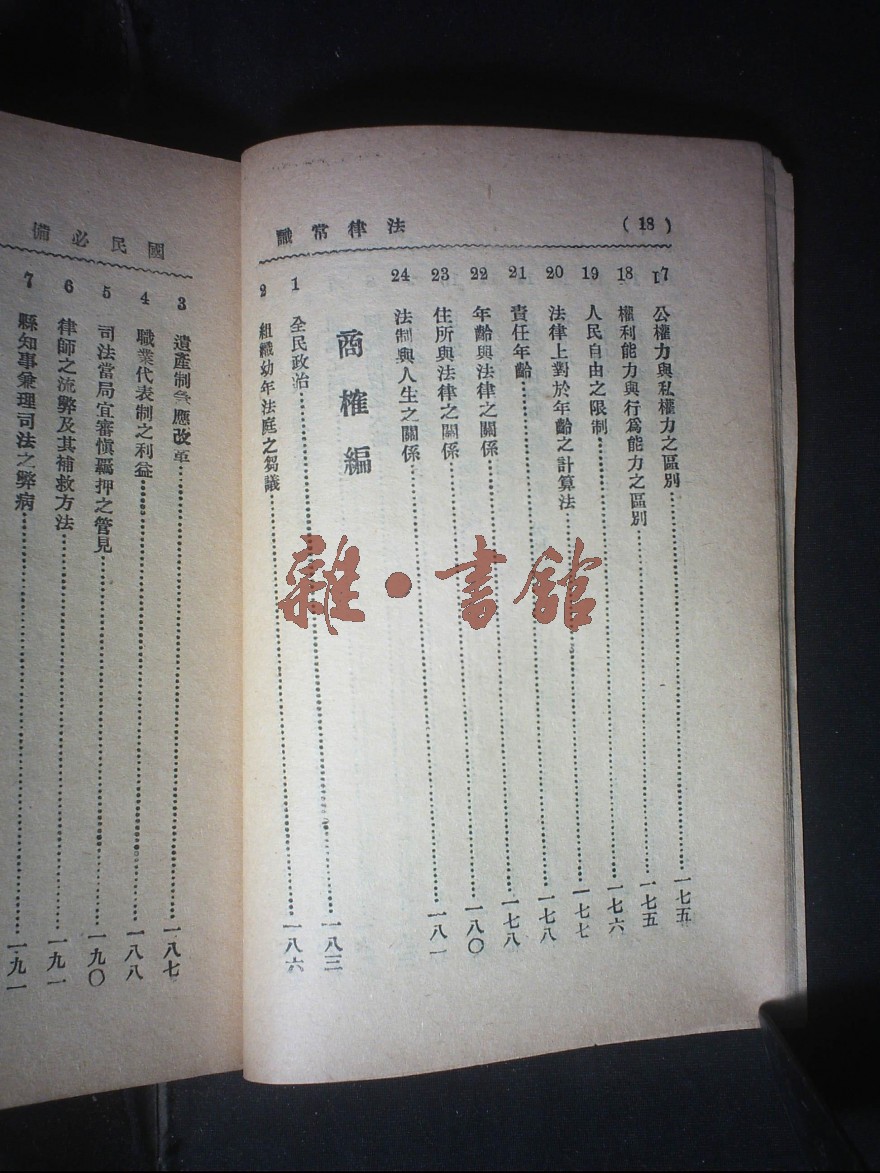 (18)
法律常識
17 公權力與私權力之區別……一七五
18 權利能力與行爲能力之區別……一七五
19 人民自由之限制……一七六
20 法律上對於年齡之計算法……一七七
21 責任年齡……一七八
22 年齡與法律之關係……一七八
23 住所與法律之關係……一八〇
24 法制與人生之關係……一八一
商榷編
1 全民政治……一八三
2 組織幼年法庭之芻議……一八六
國民必備
3 遺產制應改革……一八七
4 職業代表制之利益……一八八
5 司法當局宜審愼羈押之管見……一九〇
6 律師之流弊及其補救方法……一九一
7 縣知事兼理司法之弊病……一九一
雜·書館